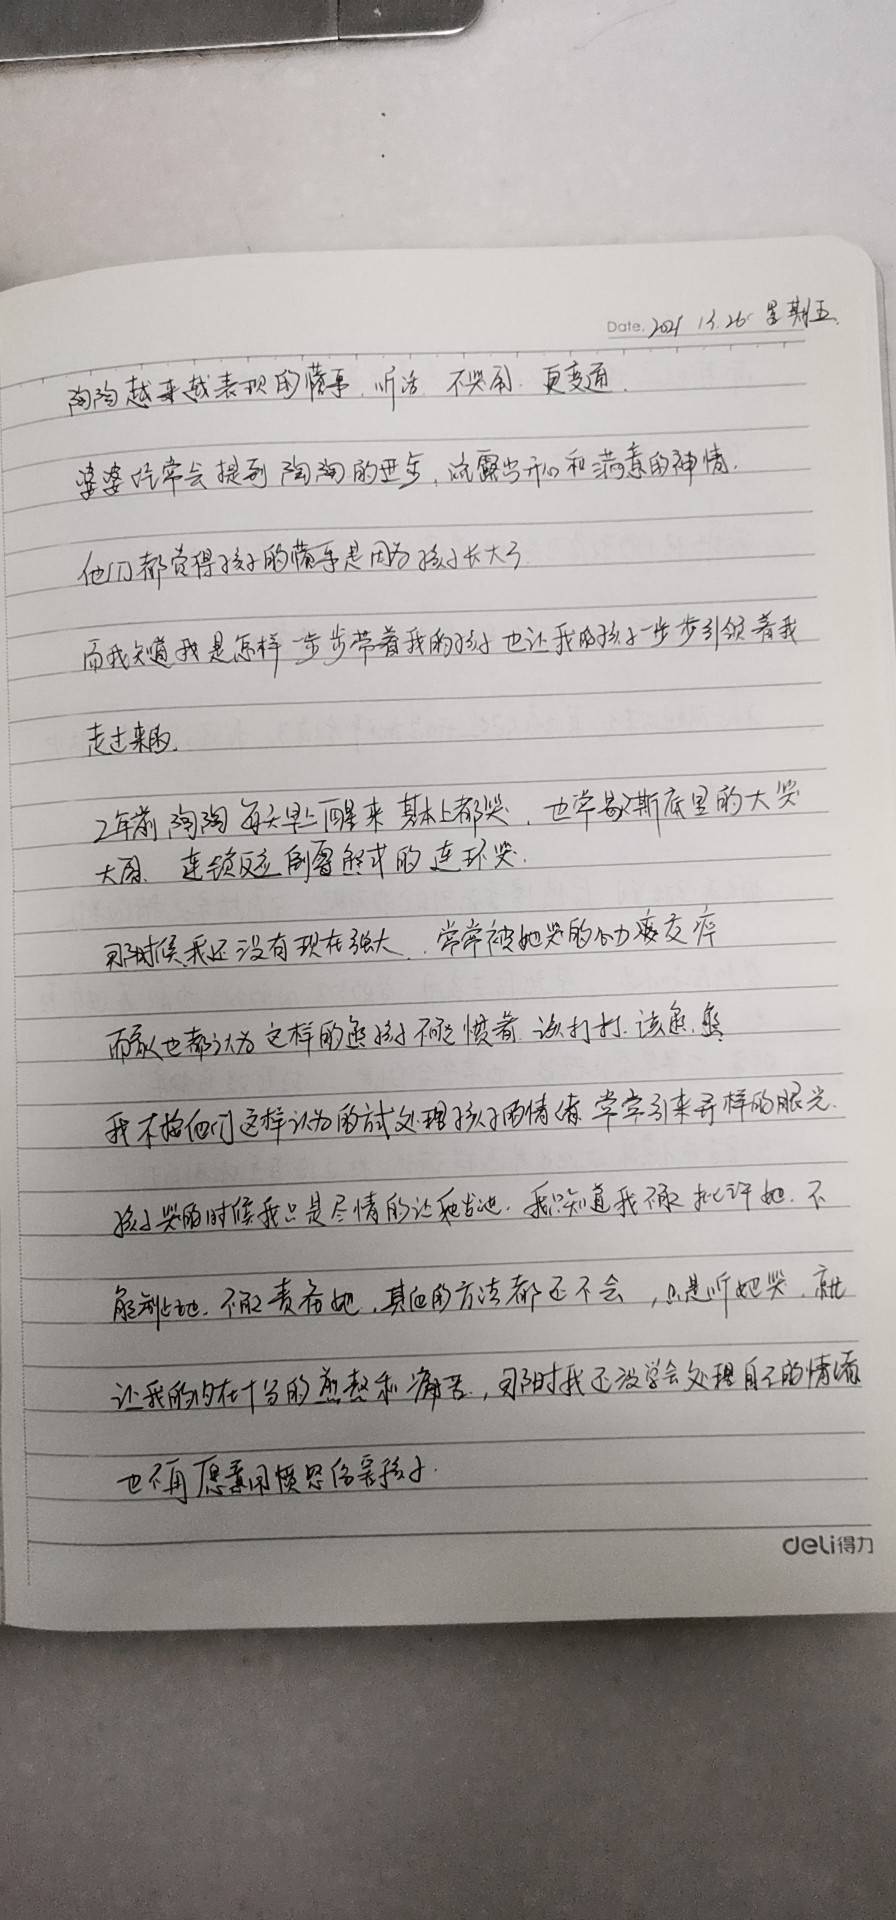 Date. 2021 13.26 星期五.
陶陶越来越表现的懂事.听话 不哭闹.更变通.
婆婆经常会提到陶陶的进步,流露出开心和满意的神情.
他们都觉得孩子的懂事是因为孩子长大了
而我知道我是怎样一步步带着我的孩子也让我的孩子一步步引领着我
走过来的.
2年前陶陶每天早上醒来基本上都哭,也常歇斯底里的大哭
大闹.连锁反应倒带式的连环哭.
那时候我还没有现在强大..常常被她哭的心力疲交瘁
而家人也都认为这样的熊孩子不能惯着.该打打.该熊熊
我不按他们这样认为的方式处理孩子的情绪常常引来异样的眼光.
孩子哭的时候我只是尽情的让她发泄.我只知道我不能批评她.不
能制止她.不能责备她,其他的方法都还不会,只是听她哭.就
让我的内在十分的煎熬和痛苦,那时我还没学会处理自己的情绪
也不再愿意用愤怒伤害孩子.
deli得力